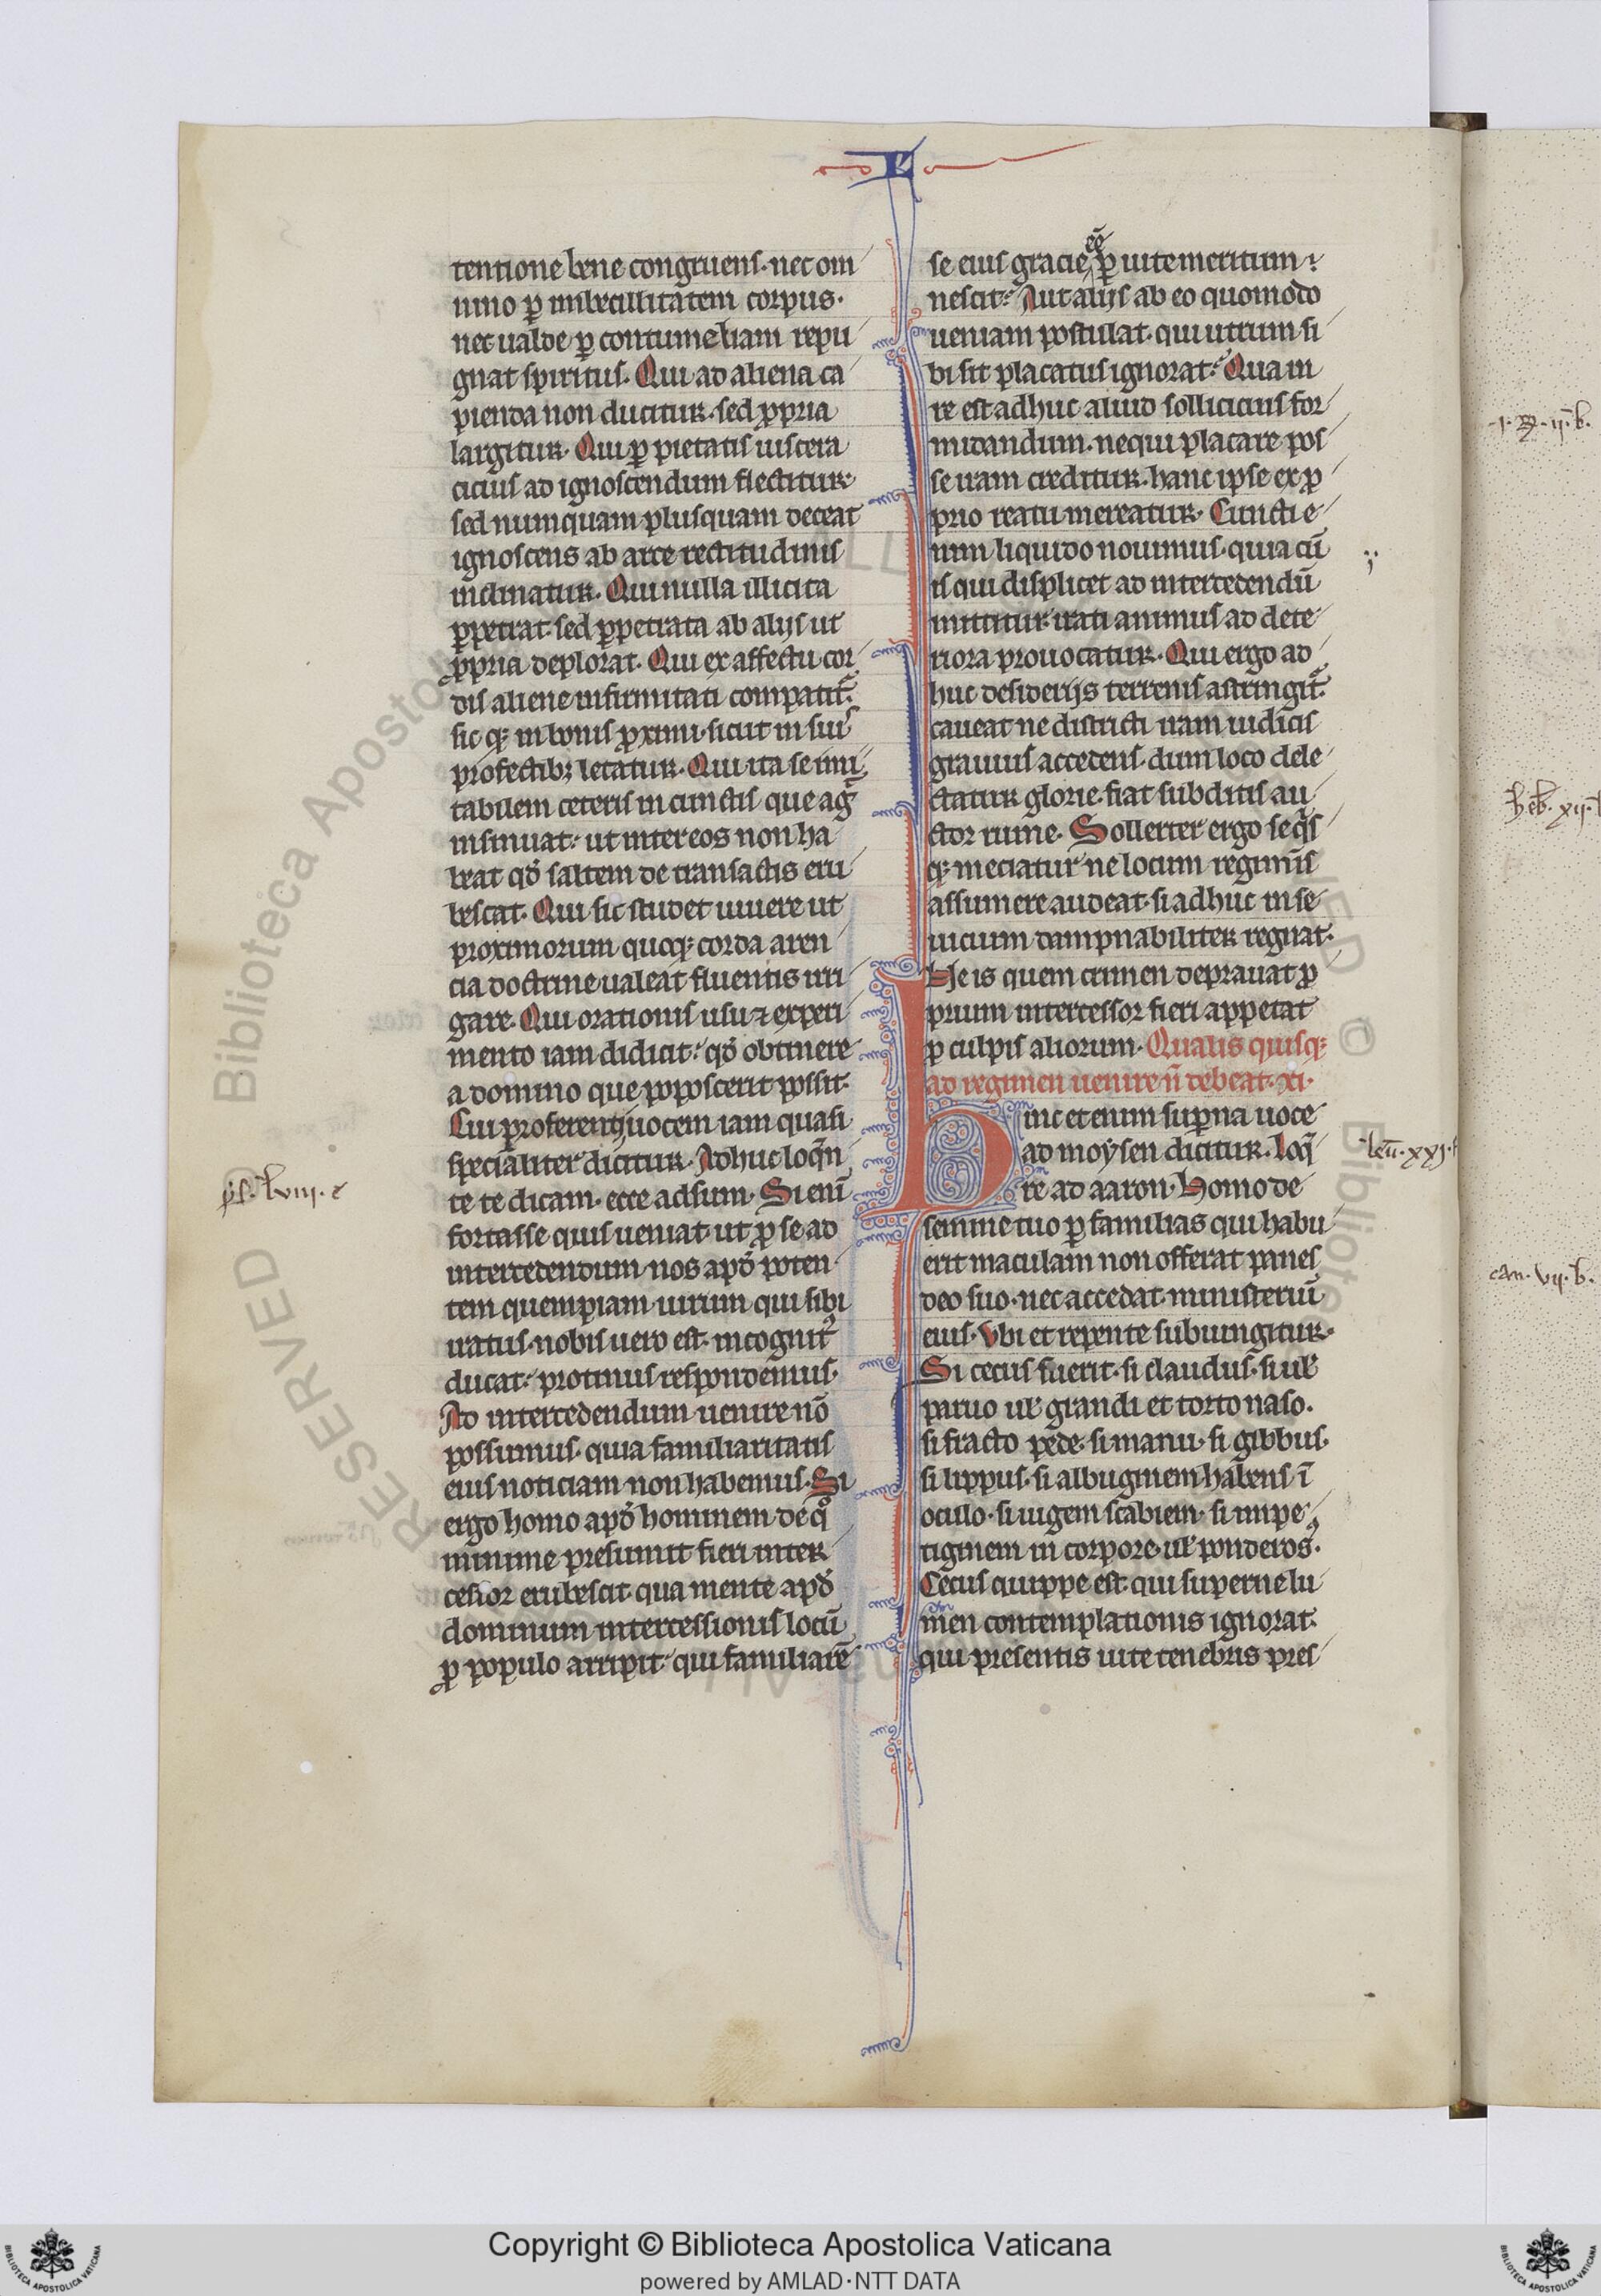 L
tentione bene congruens· nec om
nino ꝑ imbecillitatem corpus·
nec ualde ꝑ contumeliam repu
gnat spiritus. Qui ad aliena cu
pienda non ducitur· sed ꝓpria
largitur. Qui ꝑ pietatis uiscera
cicius ad ignoscendum flectitur·
sed numquam plusquam deceat
ignoscens ab arce rectitudinis
inclinatur. Qui nulla illicita
ꝑpetrat· sed ꝑpetrata ab alijs ut
ꝓpria deplorat. Qui ex affectu cor
dis aliene infirmitati compatit᷑.
sic qꝫ in bonis ꝓximi· sicut in suis
profectibꝫ letatur. Qui ita se imi
tabilem ceteris in cunctis que ag̃
insinuat· ut inter eos non ha
beat qđ saltem de transactis eru
bescat. Qui sic studet uiuere ut
proximorum quoqꝫ corda aren
cia doctrine ualeat fluentis irri
gare. Qui orationis usu ⁊ experi
mento iam didicit· qđ obtinere
a domino que poposcerit possit·
Cui proferenti uocem iam quasi
specialiter dicitur. Adhuc loq̃n
te te dicam· ecce adsum. Si enĩ
fortasse quis ueniat ut ꝓ se ad
intercedendum nos apđ poten
tem quempiam uirum qui sibi
iratus· nobis uero est incognitꝰ
ducat· protinus respondemus·
Ad intercedendum uenire nõ
possumus· quia familiaritatis
eius noticiam non habemus. Si
ergo homo apđ hominem de qͦ
minime presumit fieri inter
cessor erubescit· qua mente apđ
dominum intercessionis locũ
ꝓ populo arripit· qui familiarẽ
se eius gracie eẽ ꝑ uite meritum
nescit· Aut alijs ab eo quomodo
ueniam postulat· qui utrum si
bi sit placatus ignorat· Qua in
re est adhuc aliud sollicicius for
midandum· ne qui placare pos
se iram creditur· hanc ipse ex ꝓ
prio reatu mereatur. Cuncti e
nim liquido nouimus· quia cũ
is qui displicet ad intercedendũ
mittitur· irati animus ad dete
riora prouocatur. Qui ergo ad
huc desiderijs terrenis astringit᷑.
caueat ne districti iram iudicis
grauius accedens· dum loco dele
ctatur glorie· fiat subditis au
ctor ruine. Sollerter ergo se q̃s
qꝫ meciatur ne locum regiminis
assumere audeat· si adhuc in se
uicium dampnabiliter regnat·
Ne is quem crimen deprauat ꝓ
prium intercessor fieri appetat
ꝓ culpis aliorum. Qualis quisqꝫ
ad regimen uenire ñ debeat· xi·
Hinc etenim suꝑna uoce
ad moysen dicitur. Loq̃
re ad aaron· Homo de
semine tuo ꝑ familias qui habu
erit maculam non offerat panes
deo suo· nec accedat ministeriũ
eius. Vbi et repente subiungitur·
Si cecus fuerit· si claudus· si ul̃
paruo ul̃ grandi et torto naso.
si fracto pede· si manu· si gibbus·
si lippus· si albuginem habens ĩ
oculo· si iugem scabiem· si impe
tiginem in corpore· ul̃ ponderos.
Cecus quippe est qui superne lu
men contemplationis ignorat·
qui presentis uite tenebris pres
ps. lviii. e
leũ. xxi.
ii. b.
heb. xii.
can. vii. b.
RESERVED © Biblioteca Apostolica
Copyright © Biblioteca Apostolica Vaticana
powered by AMLAD·NTT DATA